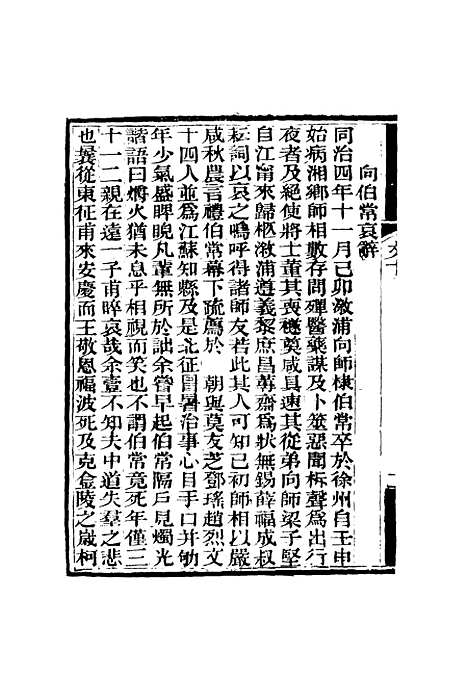 向伯常哀辭
同治四年十一月己卯漵浦向師棣伯常卒於徐州自壬申
始病湘鄉師相數存問殫醫藥謀及卜筮惡聞柝聲爲出行
夜者及絕使將士董其喪槥奠咸具速其從弟向師梁子堅
自江甯來歸柩漵浦遵義黎庶昌蓴齋爲狀無錫薛福成叔
耘詞以哀之嗚呼得諸師友若此其人可知已初師相以嚴
咸秋農言禮伯常幕下疏薦於 朝與莫友芝鄧瑤趙烈文
十四人並爲江蘇知縣及是北征冒暑治事心目手口并劬
年少氣盛睥睨凡輩無所於詘余嘗早起伯常隔戶見燭光
諧語曰爝火猶未息乎相視而笑也不謂伯常竟死年僅三
十一二親在遠一子甫晬哀哉余壹不知夫中道失羣之悲
也曩從東征甫來安慶而王敬恩福波死及克金陵之歲柯